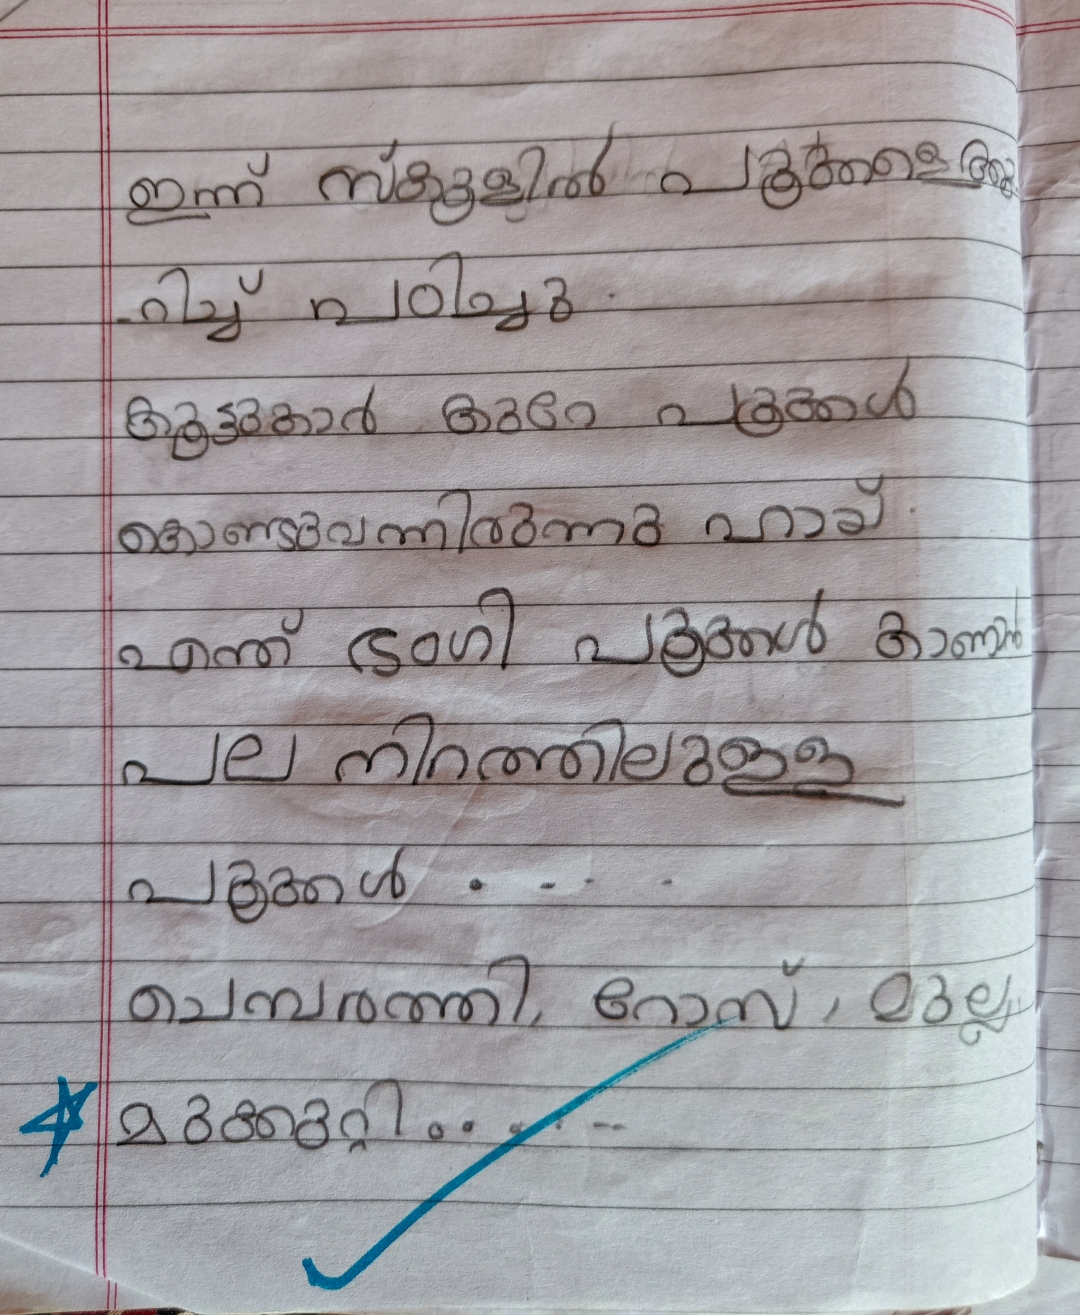 ഇന്ന് സ്കൂളിൽ പൂക്കളെക്കു
റിച്ച് പഠിച്ചു.
കൂട്ടുകാർ കുറേ പൂക്കൾ
കൊണ്ടുവന്നിരുന്നു ഹായ്.
എന്ത് ഭംഗി പൂക്കൾ കാണാൻ
പല നിറത്തിലുള്ള
പൂക്കൾ . . . .
ചെമ്പരത്തി, റോസ്, മുല്ല,
മുക്കുറ്റി . . . . . .